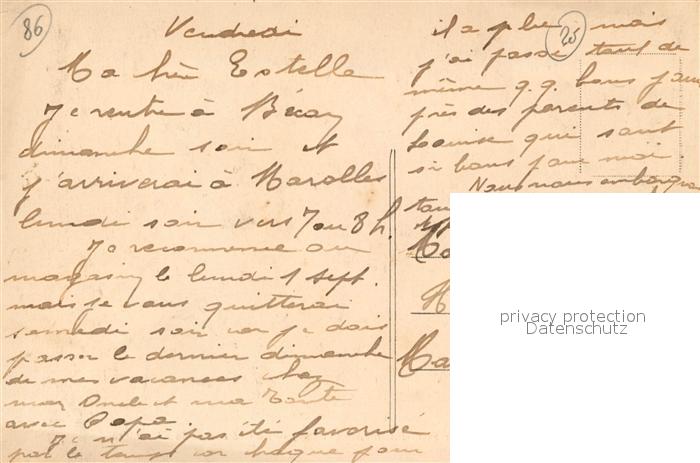 86
Vendredi
Ma chère Estelle
Je rentre à Bécon
dimanche soir et
j'arriverai à Marolles
lundi soir vers 7 ou 8 h.
Je recommence au
magasin le lundi 1 sept.
mais je vous quitterai
samedi soir car je dois
passer le dernier dimanche
de mes vacances chez
mon Oncle et ma Tante
avec Papa.
Je n'ai pas été favorisé
par le temps car chaque jour
il a plu mais
25
j'ai passé tout de
même q.q. bons jours
près des parents de
Louise qui sont
si bons pour moi.
Nous nous
Ma
privacy protection
Datenschutz